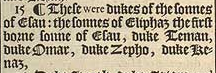 15 ¶ These were dukes of the sonnes
of Esau: the sonnes of Eliphaz the first
borne sonne of Esau, duke Teman,
duke Omar, duke Zepho, duke Ke-
naz,